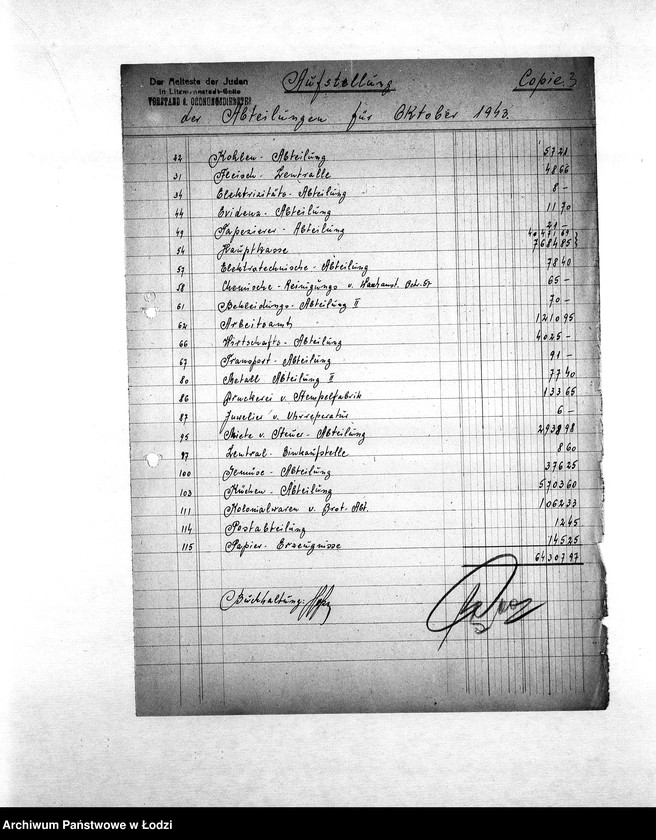 Der Aelteste der Juden
in Litzmannstadt-Getto
VORSTAND d. ORDNUNGSDIENSTES
Aufstellung Copie 3
der Abteilungen für Oktober 1943.
22 Kohlen - Abteilung 57 21
31 Fleisch - Zentralle 48 66
34 Elektrizitäts - Abteilung 8 -
44 Evidenz - Abteilung 11 70
49 Tapezierer - Abteilung 21 -
54 Hauptkasse 7684 85
57 Elektrotechnische - Abteilung 78 40
58 Chemische - Reinigungs u. 65 -
61 Bekleidungs - Abteilung II 70 -
62 Arbeitsamt 1210 95
66 Wirtschafts - Abteilung 4025 -
67 Transport - Abteilung 91 -
80 Metall Abteilung II 77 40
86 Druckerei u. Stempelfabrik 133 65
87 Juwelier u. Uhrreperatur 6 -
95 Miete u. Steuer - Abteilung
97 Zentral - Einkaufstelle 8 60
100 Gemüse - Abteilung 376 25
103 Küchen - Abteilung 5703 60
111 Kolonialwaren u. Brot. Abt. 1062 33
114 Postabteilung 12 45
115 Papier - Erzeugnisse 145 25
64307 97
Buchhaltung:
Archiwum Państwowe w Łodzi